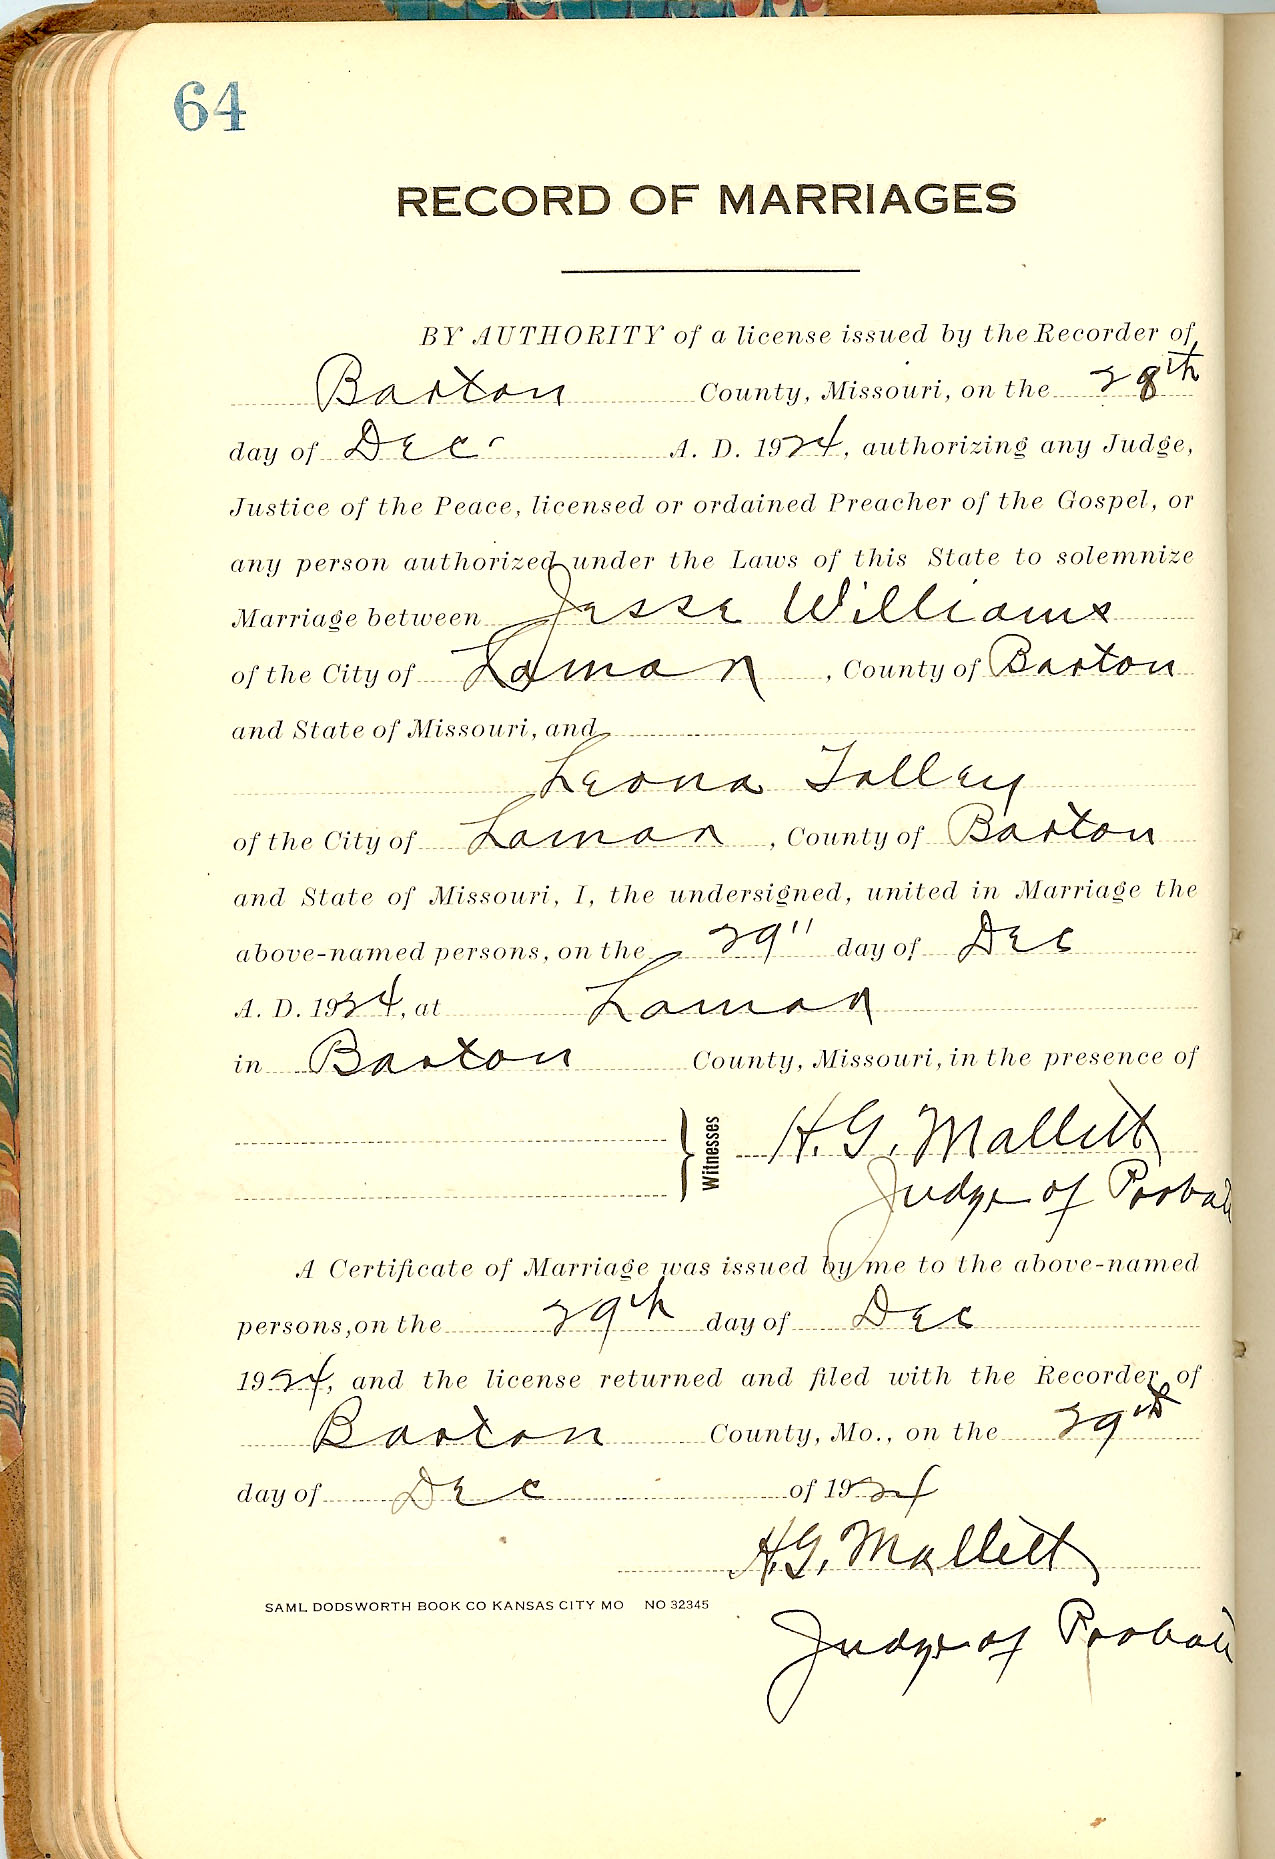 64
RECORD OF MARRIAGES
BY AUTHORITY of a license issued by the Recorder of
Barton County, Missouri, on the 28th
day of Dec. A. D. 1924, authorizing any Judge,
Justice of the Peace, licensed or ordained Preacher of the Gospel, or
any person authorized under the Laws of this State to solemnize
Marriage between Jesse Williams
of the City of Lamar, County of Barton
and State of Missouri, and
Leona Talley
of the City of Lamar, County of Barton
and State of Missouri, I, the undersigned, united in Marriage the
above-named persons, on the 29" day of Dec
A. D. 1924, at Lamar
in Barton County, Missouri, in the presence of
Witnesses H. G. Mallett
Judge of Probate
A Certificate of Marriage was issued by me to the above-named
persons, on the 29th day of Dec
1924, and the license returned and filed with the Recorder of
Barton County, Mo., on the 29th
day of Dec of 1924
H.G. Mallett
SAML DODSWORTH BOOK CO KANSAS CITY MO NO 32345
Judge of Probate